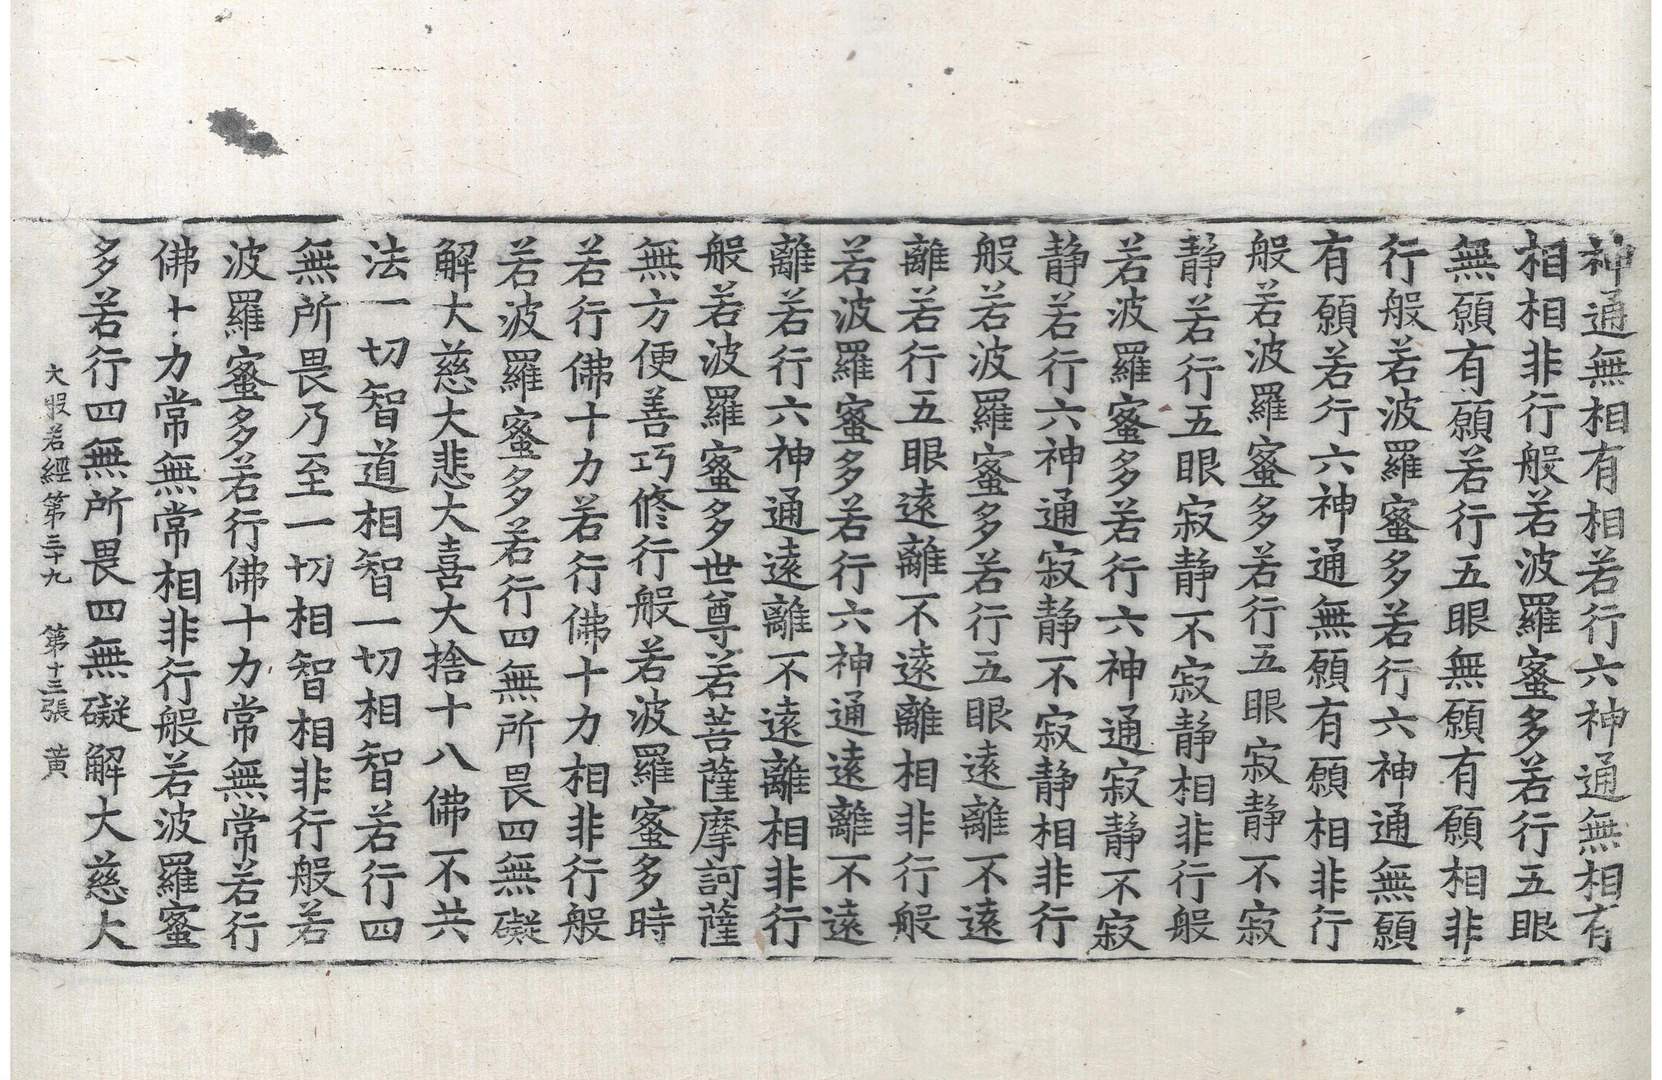 神通無相有相若行六神通無相有
相相非行般若波羅蜜多若行五眼
無願有願若行五眼無願有願相非
行般若波羅蜜多若行六神通無願
有願若行六神通無願有願相非行
般若波羅蜜多若行五眼寂静不寂
静若行五眼寂静不寂静相非行般
若波羅蜜多若行六神通寂静不寂
静若行六神通寂静不寂静相非行
般若波羅蜜多若行五眼遠離不遠
離若行五眼遠離不遠離相非行般
若波羅蜜多若行六神通遠離不遠
離若行六神通遠離不遠離相非行
般若波羅蜜多世尊若菩薩摩訶薩
無方便善巧修行般若波羅蜜多時
若行佛十力若行佛十力相非行般
若波羅蜜多若行四無所畏四無礙
解大慈大悲大喜大捨十八佛不共
法一切智道相智一切相智若行四
無所畏乃至一切相智相非行般若
波羅蜜多若行佛十力常無常若行
佛十力常無常相非行般若波羅蜜
多若行四無所畏四無礙解大慈大
大般若經第三十九 第十三張 黄